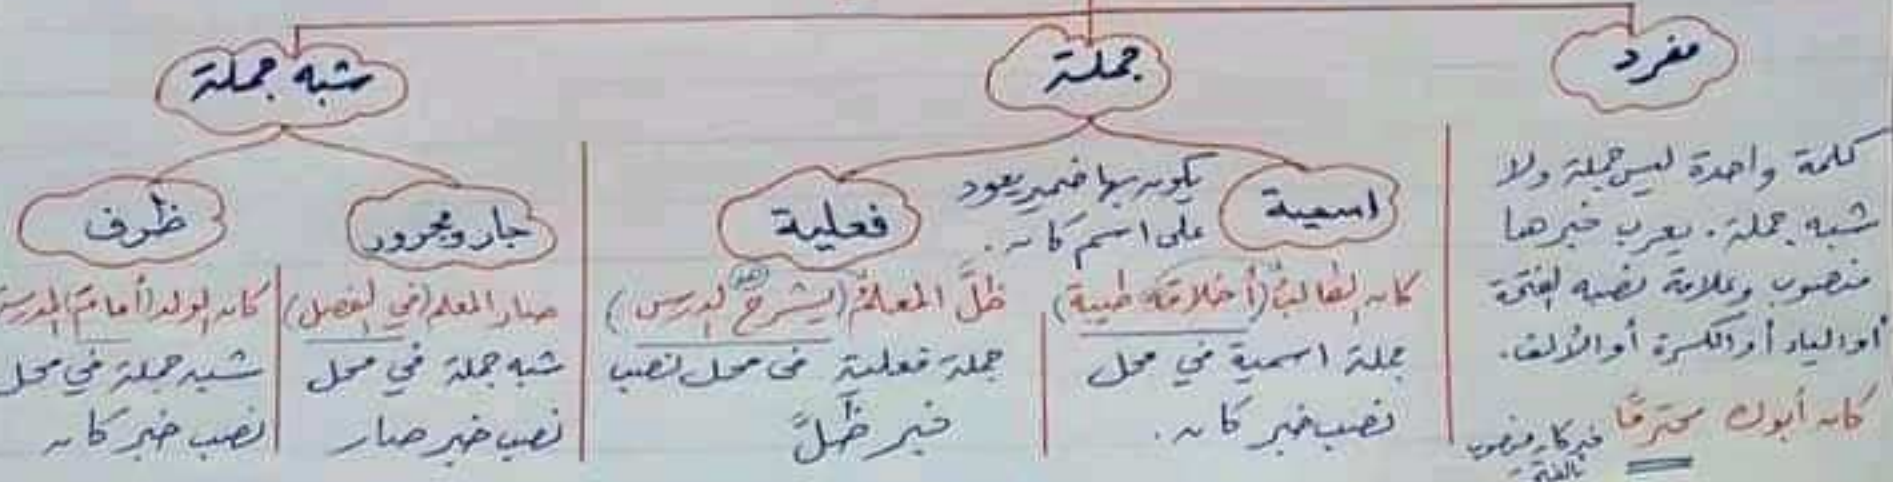 مفرد
كلمة واحدة ليس جملة ولا
شبه جملة. يعرب خبرها
منصوب وعلامة نصبه الفتحة
أو الياء أو الكسرة أو الألف.
كان أبوك محترمًا
خبر كان منصوب
بالفتحة
جملة
اسمية
يكون بها ضمير يعود
على اسم كان.
كان الطالبُ (أخلاقه طيبة)
جملة اسمية في محل
نصب خبر كان.
فعلية
ظلَّ المعلمُ (يشرحُ الدرس)
هو
جملة فعلية في محل نصب
خبر ظلَّ
شبه جملة
جار ومجرور
صار المعلم (في الفصل)
شبه جملة في محل
نصب خبر صار
ظرف
كان الولد (أمامَ المدرسة
شبه جملة في محل
نصب خبر كان